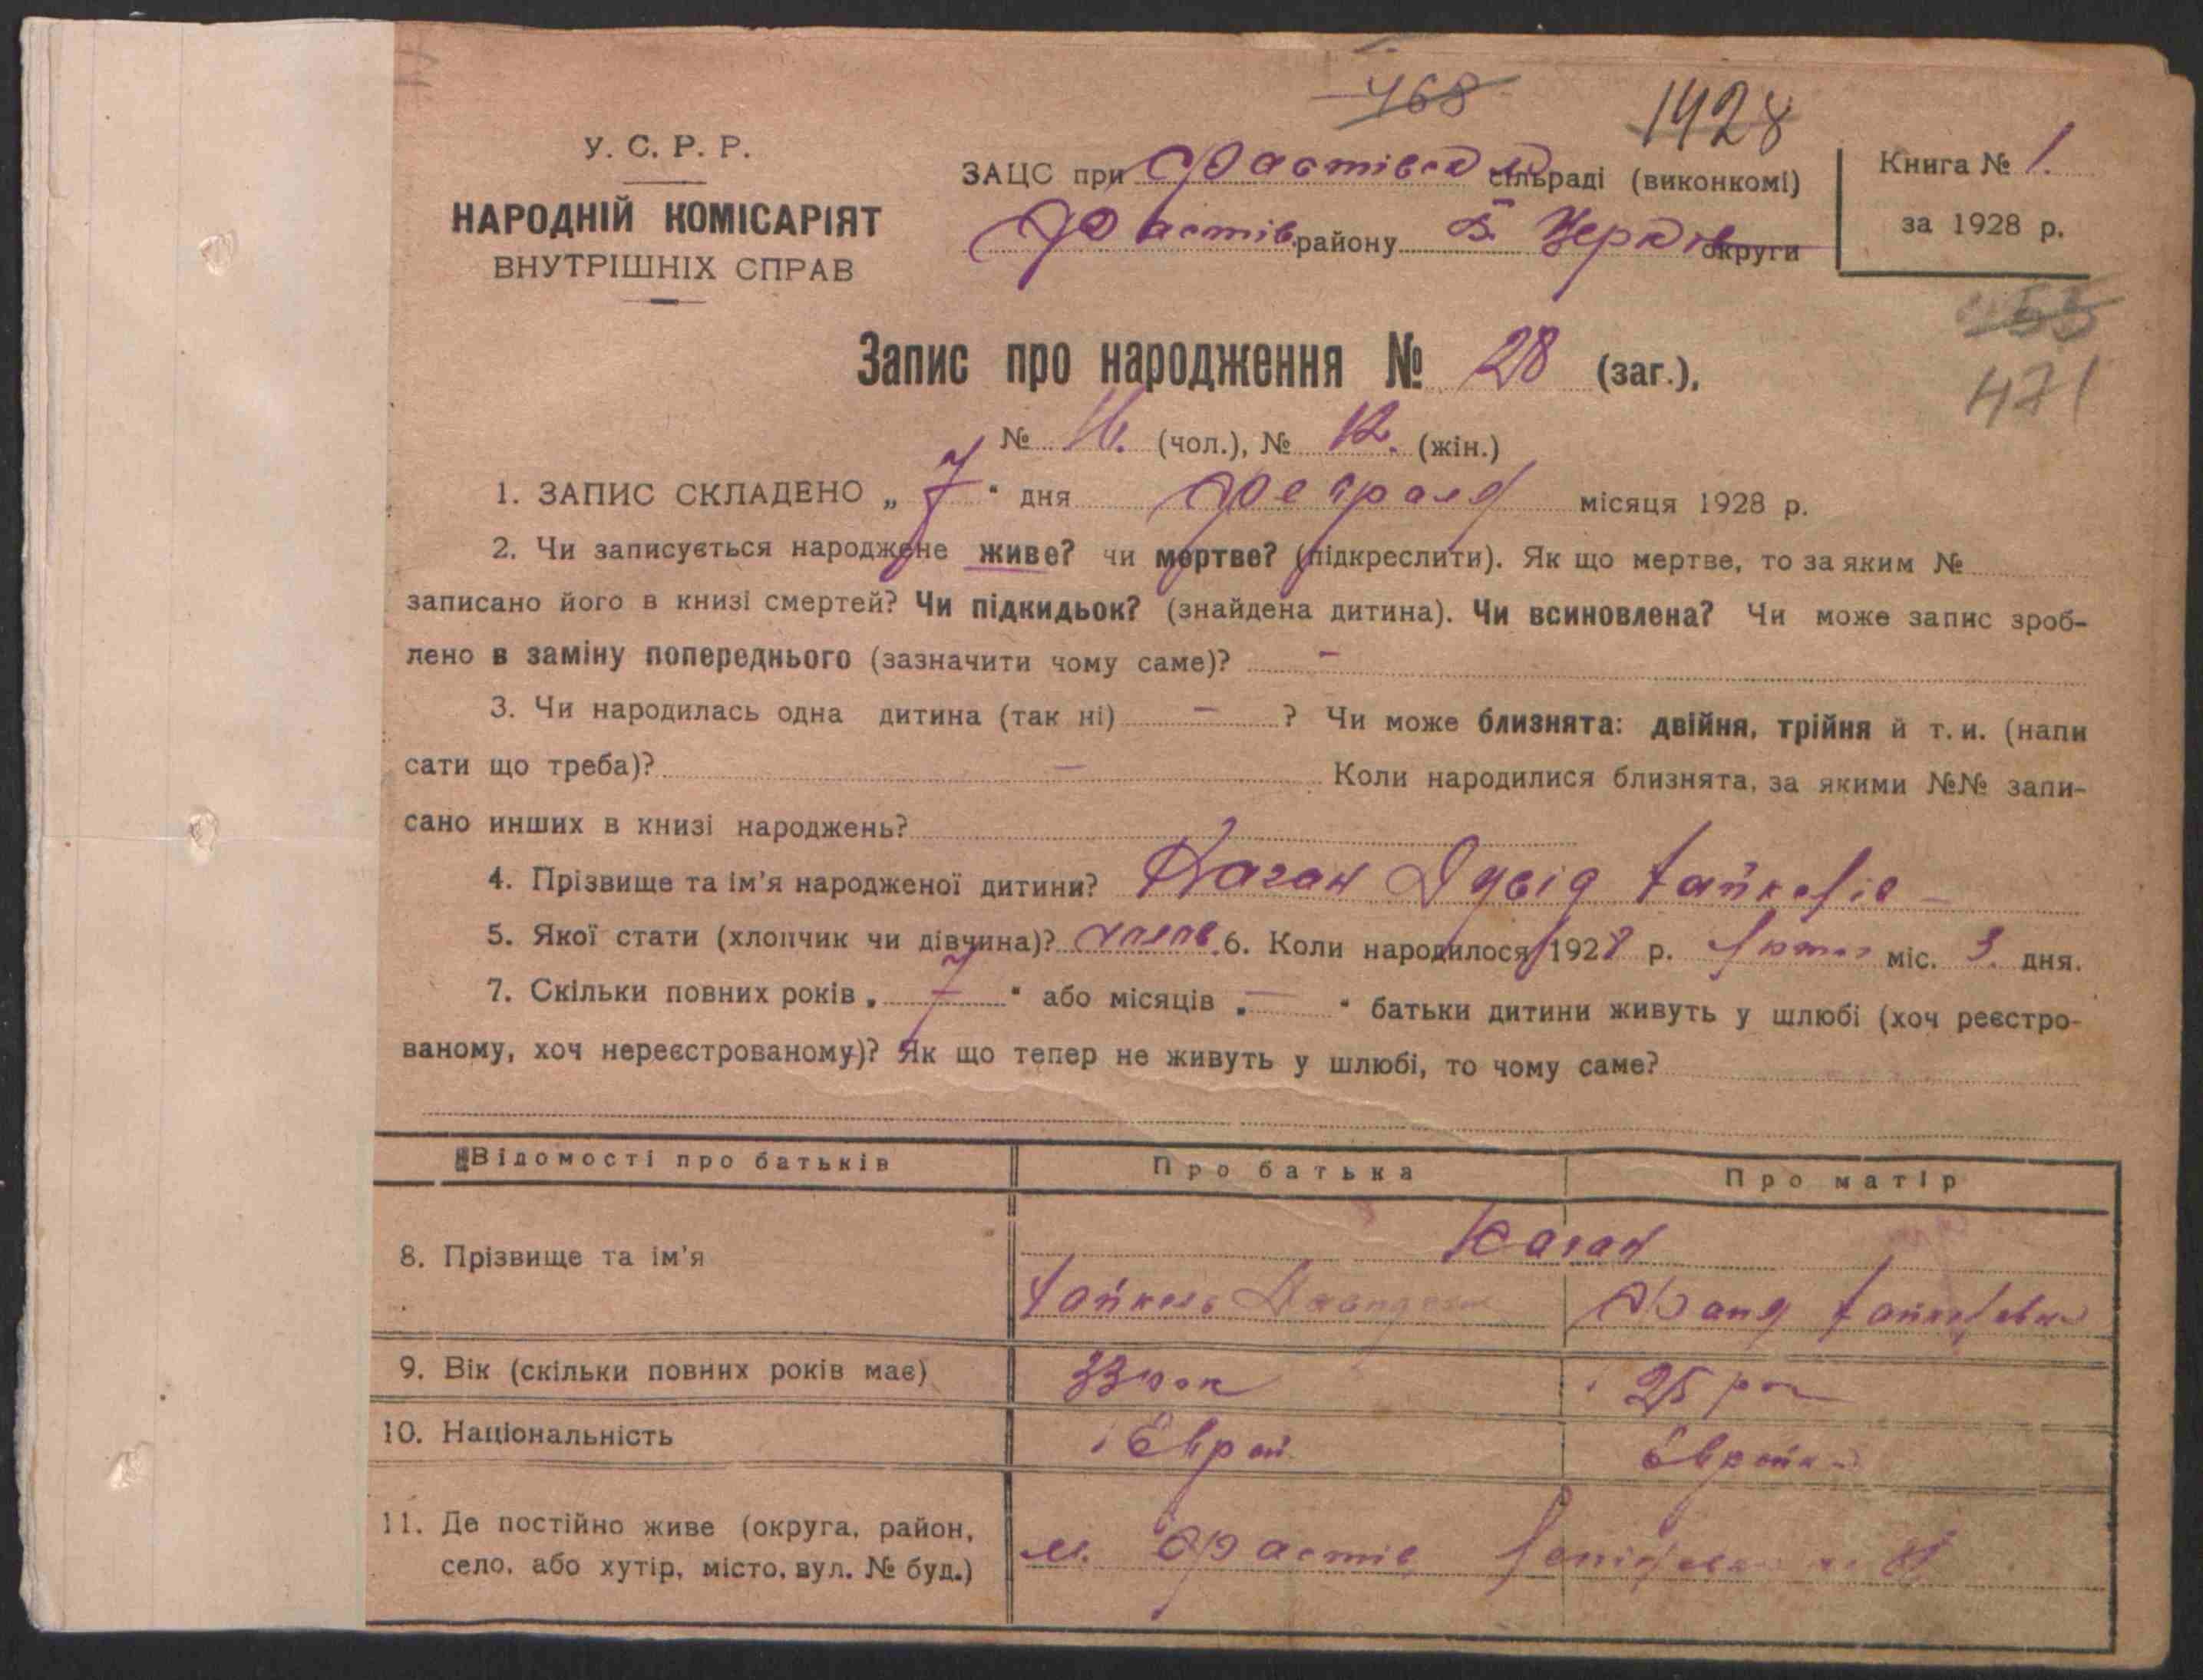 468
1428
У. С. Р. Р.
НАРОДНІЙ КОМІСАРІЯТ
ВНУТРІШНІХ СПРАВ
ЗАЦС при Фастівськ сільраді (виконкомі)
Фастів району Б. Церків округи
Книга № 1.
за 1928 р.
55
471
Запис про народження № 28 (заг.),
№ 16. (чол.), № 12. (жін.)
1. ЗАПИС СКЛАДЕНО „ 7 " дня Февраля місяця 1928 р.
2. Чи записується народжене живе? чи мертве? (підкреслити). Як що мертве, то за яким №
записано його в книзі смертей? Чи підкидьок? (знайдена дитина). Чи всиновлена? Чи може запис зроб-
лено в заміну попереднього (зазначити чому саме)? -
3. Чи народилась одна дитина (так ні) - ? Чи може близнята: двійня, трійня й т. и. (напи
сати що треба)? - Коли народилися близнята, за якими №№ запи-
сано инших в книзі народжень?
4. Прізвище та ім'я народженої дитини? Каган Дувід
5. Якої стати (хлопчик чи дівчина)? 6. Коли народилося 1928 р. міс. 3. дня.
7. Скільки повних років „ 7 " або місяців „ - " батьки дитини живуть у шлюбі (хоч реєстро-
ваному, хоч нереєстрованому)? Як що тепер не живуть у шлюбі, то чому саме?
Відомості про батьків Про батька Про матір
8. Прізвище та ім'я Каган
9. Вік (скільки повних років має) 33 рок 25 рок
10. Національність Єврей Єврейка
11. Де постійно живе (округа, район,
село, або хутір, місто, вул. № буд.) м. Фастів